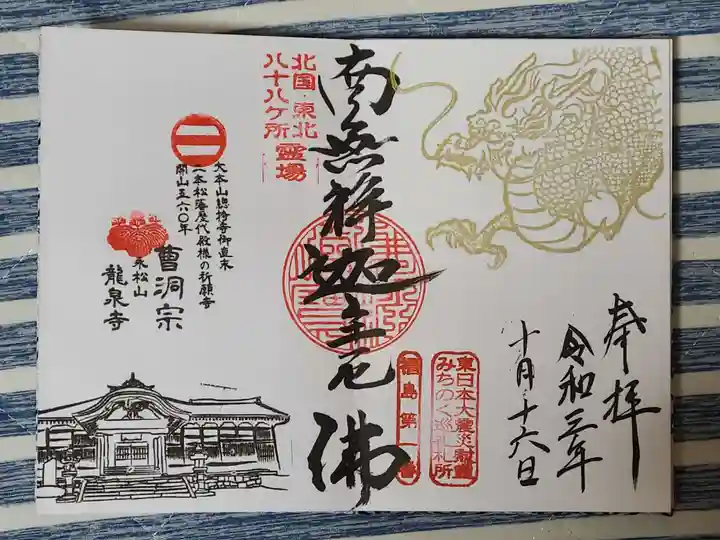 奉拝
令和三年
十月十六日
南無釈迦牟尼佛
北国・東北
八十八ヶ所霊場
東日本大震災慰霊
みちのく巡礼札所
福島第一番
大本山總持寺御直末
二本松藩歴代殿様の祈願寺
開山五六〇年
曹洞宗
永松山
龍泉寺